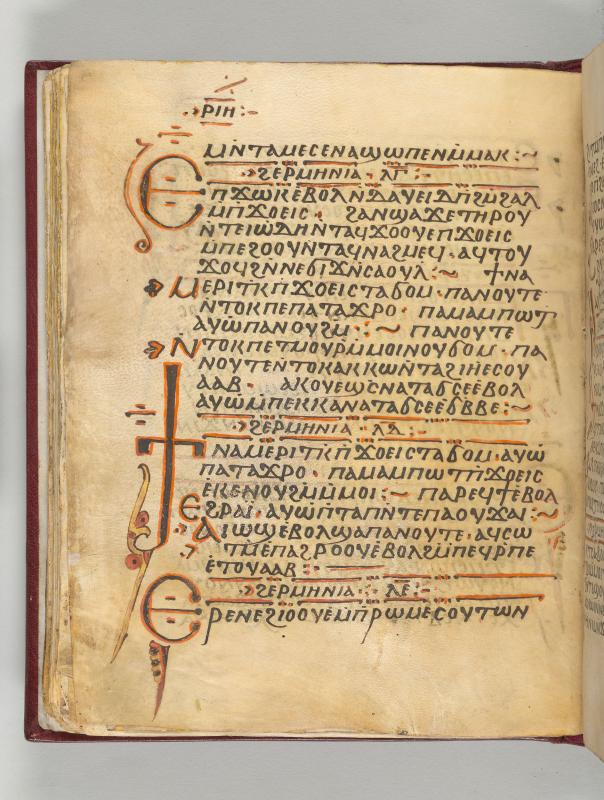 ⲣⲓⲏ:-
ⲙⲛ̄ⲧⲁⲙⲉⲥⲉⲛⲁϣⲱⲡⲉⲛⲙ̄ⲙⲁⲕ:~
ϩⲉⲣⲙⲏⲛⲓⲁ · ⲗⲅ̄
ⲉⲡϫⲱⲕⲉⲃⲟⲗⲛ̄ⲇⲁⲩⲉⲓⲇⲡϩⲙ̄ϩⲁⲗ
ⲙ̄ⲡϫⲟⲉⲓⲥ · ϩⲁⲛϣⲁϫⲉⲧⲏⲣⲟⲩ
ⲛ̄ⲧⲉⲓⲱⲇⲏⲛⲧⲁϥϫⲟⲟⲩⲉⲡϫⲟⲉⲓⲥ
ⲙ̄ⲡⲉϩⲟⲟⲩⲛⲧⲁϥⲛⲁϩⲙⲉϥ · ⲁϥⲧⲟⲩ
ϫⲟϥϩⲛ̄ⲛⲉϭⲓϫⲛ̄ⲥⲁⲟⲩⲗ:~ ϯⲛⲁ
ⲙⲉⲣⲓⲧⲕ̄ⲡ̄ϫⲟⲉⲓⲥⲧⲁϭⲟⲙ · ⲡⲁⲛⲟⲩⲧⲉ
ⲛ̄ⲧⲟⲕⲡⲉⲡⲁⲧⲁϫⲣⲟ · ⲡⲁⲙⲁⲙⲡⲱⲧ
ⲁⲩⲱⲡⲁⲛⲟⲩϩⲙ̄:~ ⲡⲁⲛⲟⲩⲧⲉ
ⲛ̄ⲧⲟⲕⲡⲉⲧⲙⲟⲩⲣⲙ̄ⲙⲟⲓⲛⲟⲩϭⲟⲙ · ⲡⲁ
ⲛⲟⲩⲧⲉⲛ̄ⲧⲟⲕⲁⲕⲕⲱⲛ̄ⲧⲁϩⲓⲏⲉⲥⲟⲩ
ⲁⲁⲃ · ⲁⲕⲟⲩⲉⲱⲥⲛⲁⲧⲁϭⲥⲉⲉⲃⲟⲗ
ⲁⲩⲱⲙ̄ⲡⲉⲕⲕⲁⲛⲁⲧⲁϭⲥⲉⲉϭⲃⲃⲉ:~
ϩⲉⲣⲙⲏⲛⲓⲁ · ⲗⲇ̄
ϯⲛⲁⲙⲉⲣⲓⲧⲕ̄ⲡ̄ϫⲟⲉⲓⲥⲧⲁϭⲟⲙ · ⲁⲩⲱ
ⲡⲁⲧⲁϫⲣⲟ · ⲡⲁⲙⲁⲙⲡⲱⲧⲡ̄ϫⲟⲉⲓⲥ
ⲉⲕⲉⲛⲟⲩϩⲙ̄ⲙ̄ⲙⲟⲓ:~ ⲡⲁⲣⲉϥϯⲉⲃⲟⲗ
ⲉϩⲣⲁⲓ · ⲁⲩⲱⲡⲧⲁⲡⲛ̄ⲧⲉⲡⲁⲟⲩϫⲁⲓ:~
ⲁⲓⲱϣⲉⲃⲟⲗϣⲁⲡⲁⲛⲟⲩⲧⲉ · ⲁϥⲥⲱ
ⲧⲙ̄ⲉⲡⲁϩⲣⲟⲟⲩⲉⲃⲟⲗϩⲙ̄ⲡⲉϥⲣⲡⲉ
ⲉⲧⲟⲩⲁⲁⲃ:
ϩⲉⲣⲙⲏⲛⲓⲁ ⲗⲉ̄
ⲉⲣⲉⲛⲉϩⲓⲟⲟⲩⲉⲙ̄ⲡⲣⲱⲙⲉⲥⲟⲩⲧⲱⲛ